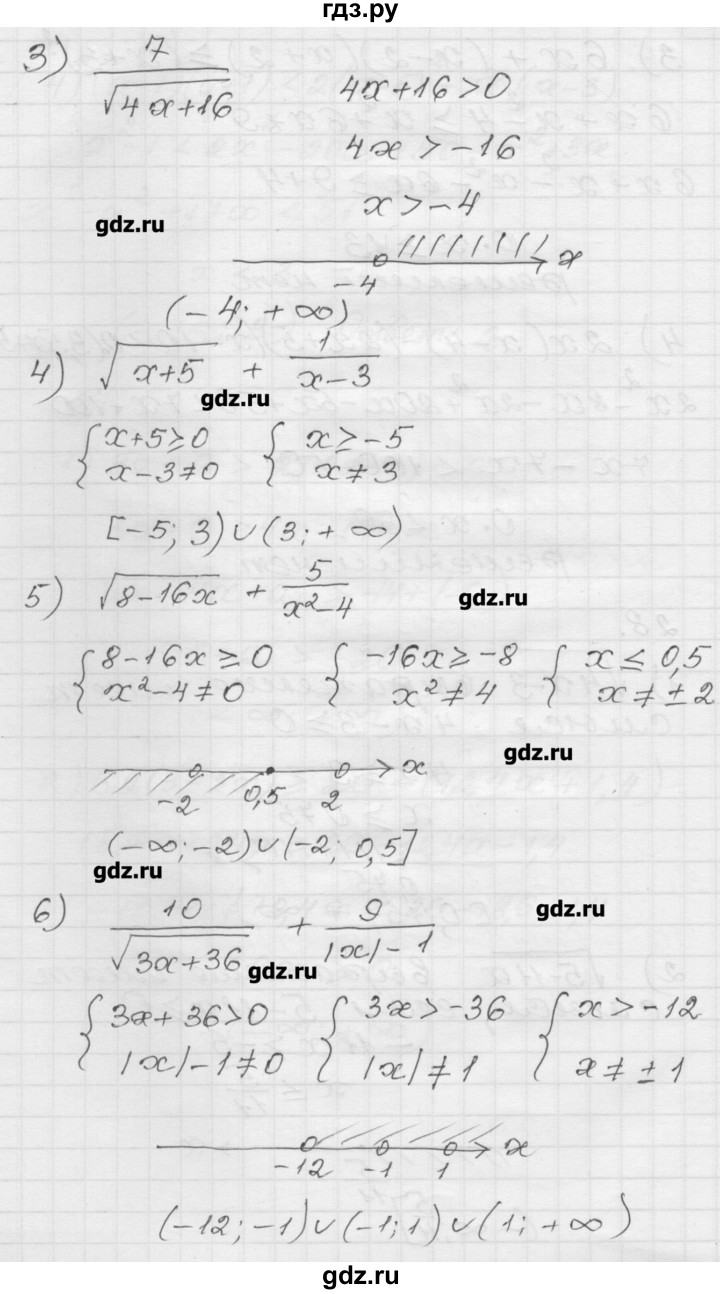 гдз.ру
3) 7/√(4x+16) 4x+16>0
4x>-16
x>-4
gdz.ru
-4 x
(-4; +∞)
4) √(x+5) + 1/(x-3)
gdz.ru
{x+5≥0 {x≥-5
{x-3≠0 {x≠3
[-5; 3)∪(3; +∞)
5) √(8-16x) + 5/(x²-4)
gdz.ru
{8-16x≥0 {-16x≥-8 {x≤0,5
{x²-4≠0 {x²≠4 {x≠±2
gdz.ru
-2 0,5 2 x
(-∞;-2)∪(-2; 0,5]
gdz.ru
6) 10/√(3x+36) + 9/(|x|-1)
gdz.ru
gdz.ru
{3x+36>0 {3x>-36 {x>-12
{|x|-1≠0 {|x|≠1 {x≠±1
-12 -1 1 x
(-12;-1)∪(-1;1)∪(1;+∞)
gdz.ru